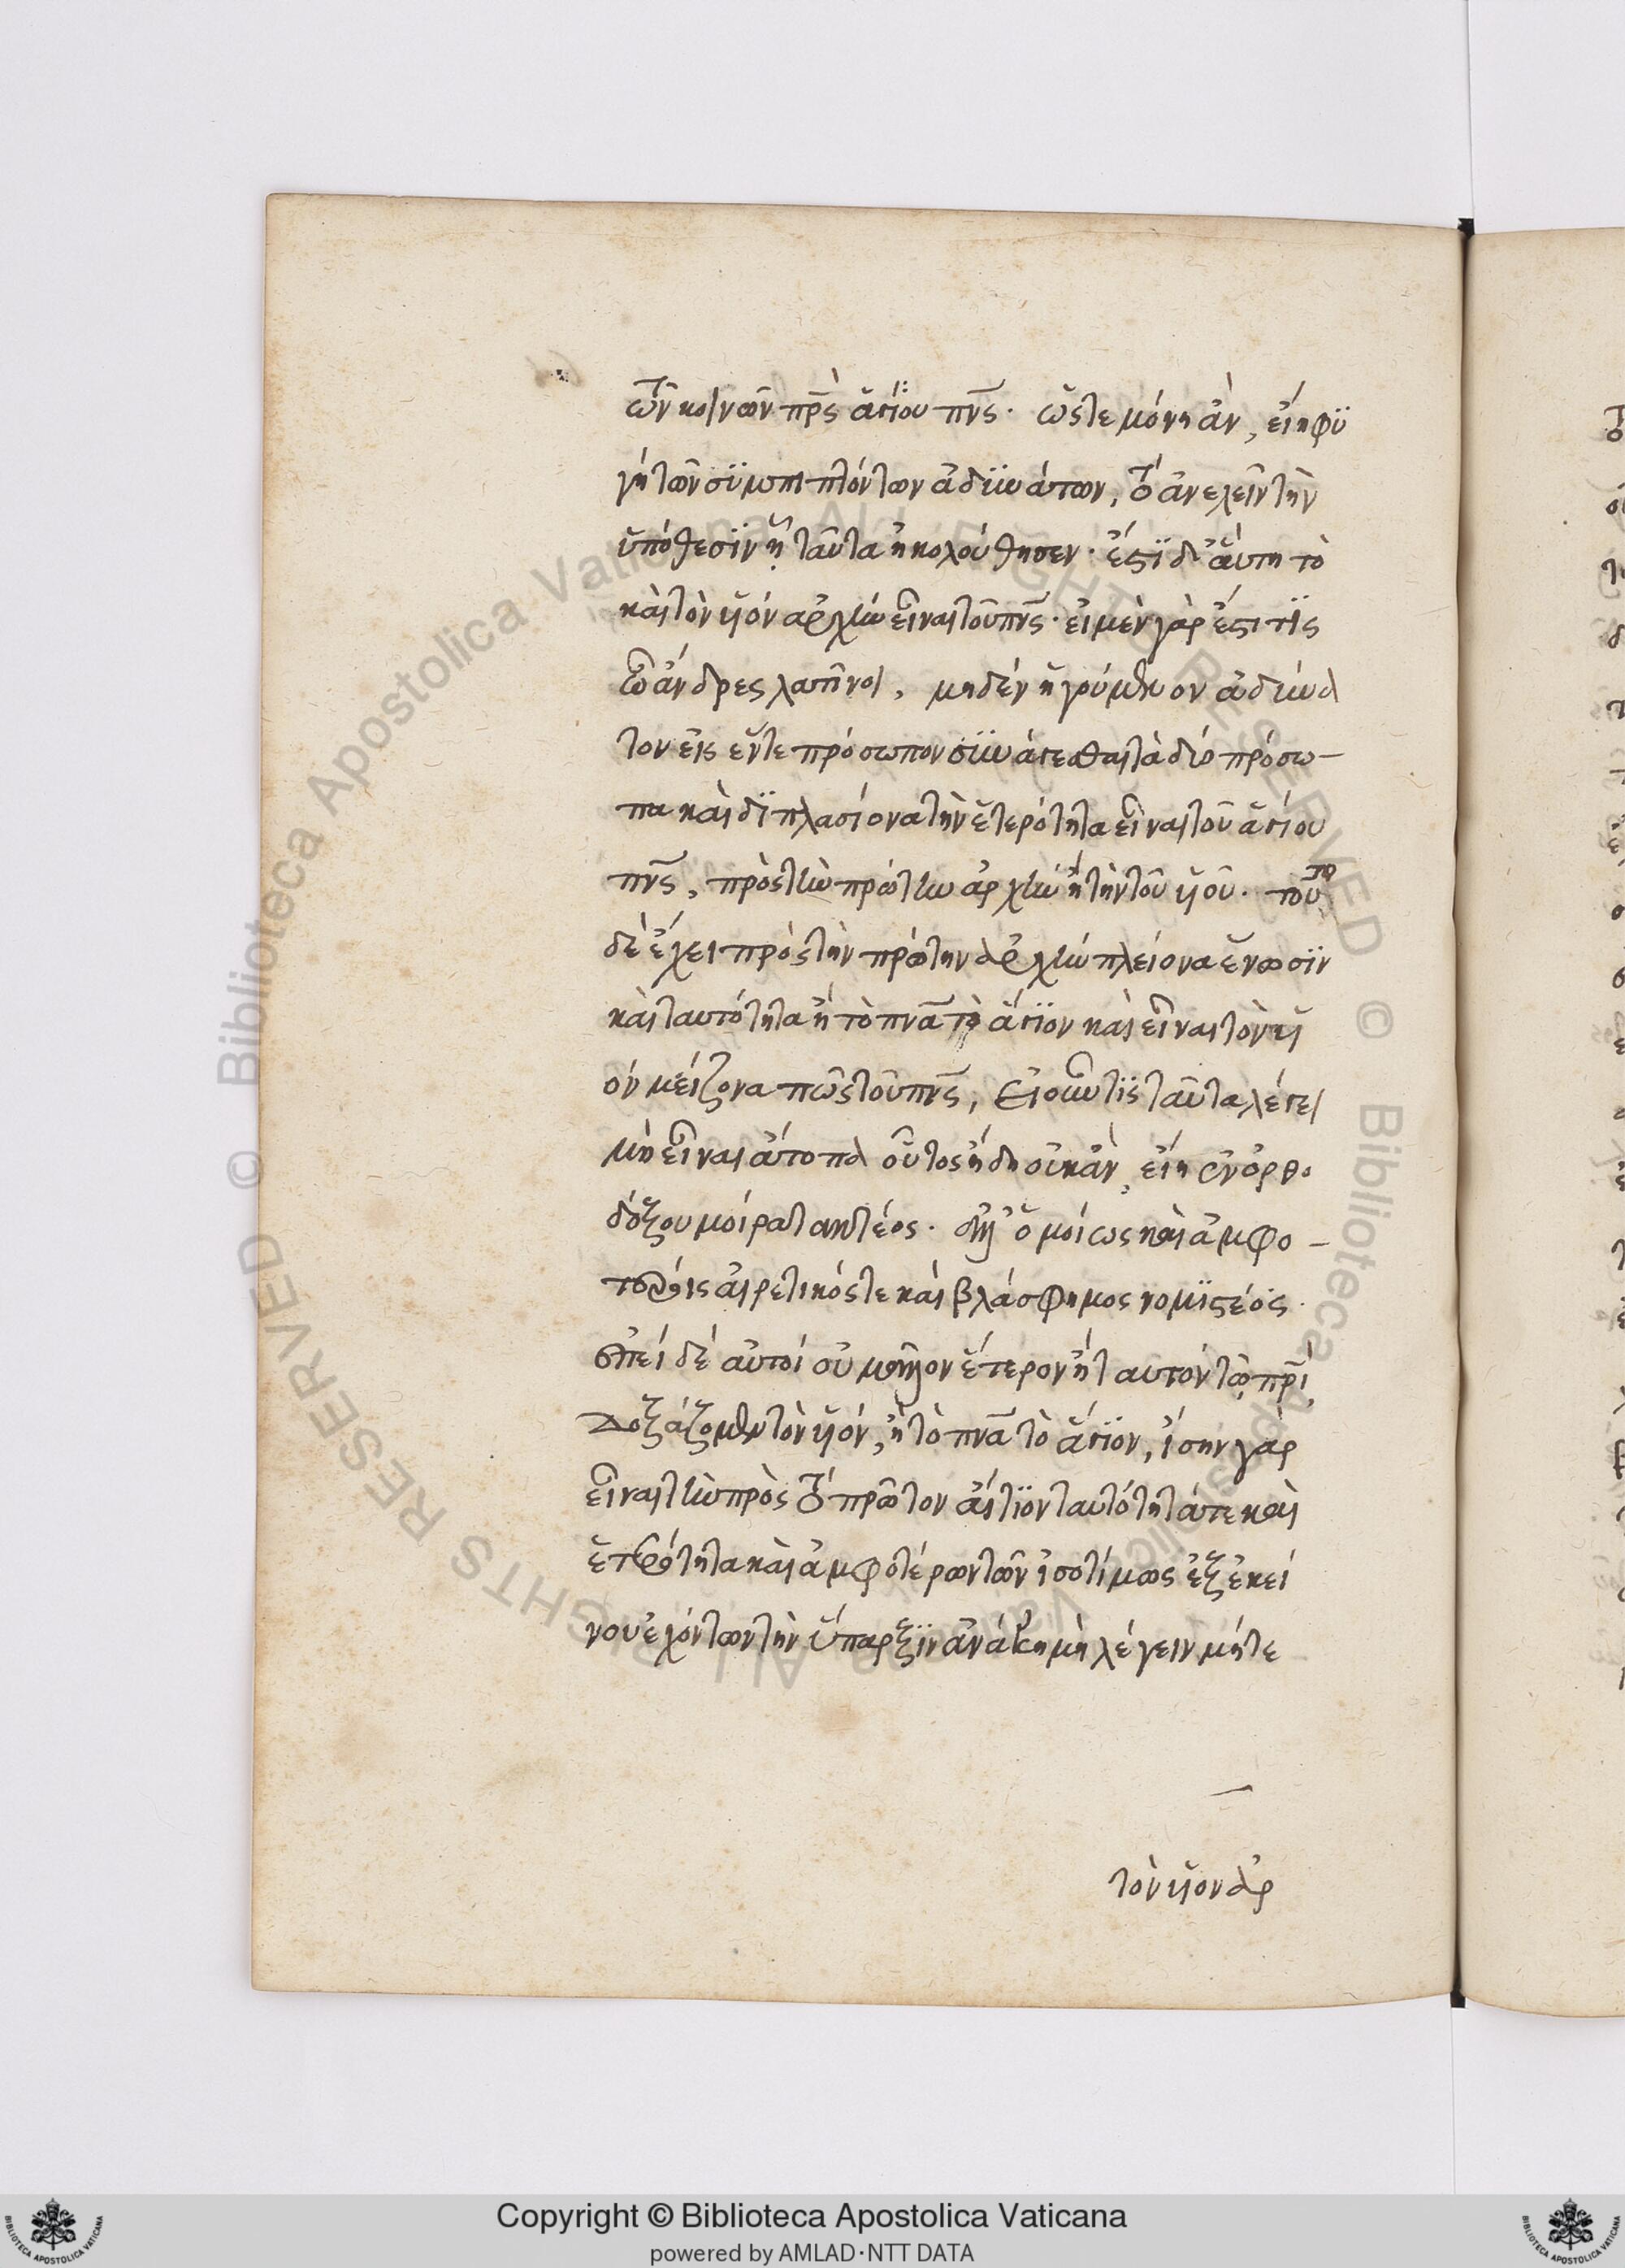 τῶν κοινῶν πρὸς ἁγίου πνς. ὥστε μόνη ἂν, εἴη φυ
γὴ τῶν συμπιπτόντων ἀδυνάτων, τό ἀνελεῖν τὴν
ὑπόθεσϊν ᾗ ταῦτα ἠκολούθησεν. ἔστϊ δ' ἅυτη τὸ
καὶ τὸν ὑϊόν ἀρχὴν εἶναι τοῦ πνς. εἰ μὲν γὰρ ἔστι τῒς
ὦ ἄνδρες λατῖνοι, μηδέν ἡγούμενον ἀδύνα
τον εἰς ἕν τε πρόσωπον συνάγεσθαι τὰ δύο πρόσω-
πα καὶ διπλασίονα τὴν ἑτερότητα εἶναι τοῦ ἁγίου
πνς, πρὸς τὴν πρώτην ἀρχὴν ἤ τὴν τοῦ ὑϊοῦ. τοῦτο
δὲ ἔχει πρὸς τὴν πρώτην ἀρχήν πλείονα ἕνωσϊν
καὶ ταυτότητα ἤ τὸ πνα τὸ ἅγϊον καὶ εἶναι τὸν ὑϊ
όν μείζονα πῶς τοῦ πνς, Εἰ οὖν τῒς ταῦτα λέγει
μὴ εἶναι ἄτοπα οὗτος ἤδη οὐκ ἂν, εἴη ἐν ὀρθο
δόξου μοίρα τακτέος. ἀλλ' ὁμοίως καὶ ἀμφο-
τέροις αἱρετικός τε καὶ βλάσφημος νομϊστέος.
ἐπεί δέ αὐτοί οὐ μᾶλλον ἕτερον ἤ ταυτόν τῷ πρί
Δοξάζομεν τὸν ὑϊόν, ἢ τὸ πνα τὸ ἅγϊον, ἴσην γὰρ
εἶναι τὴν πρὸς τό πρῶτον αἴτϊον ταυτότητά τε καὶ
ἑτερότητα καὶ ἀμφοτέρων τῶν ἰσοτίμως ἐξ ἐκεί
νου ἐχόντων τὴν ὕπαρξϊν ἀνάγκη μὴ λέγειν μήτε
τὸν ὑϊον ἀρ
Copyright © Biblioteca Apostolica Vaticana
powered by AMLAD·NTT DATA